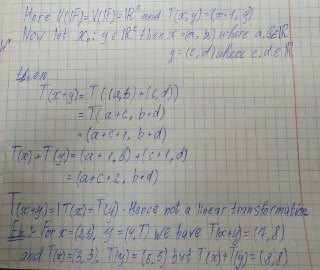 Here V(F)=V(F)=ℝ² and T(x,y)=(x+1,y)
Now let x,y∈ℝ² then x=(a,b) where a,b∈ℝ
y=(c,d) where c,d∈ℝ
then
T(x+y)=T((a,b)+(c,d))
=T(a+c, b+d)
=(a+c+1, b+d)
T(x)+T(y)=(a+1,b)+(c+1,d)
=(a+c+2, b+d)
T(x+y)≠T(x)+T(y). Hence not a linear transformation.
Ex:- For x=(2,3), y=(4,5) we have T(x+y)=(7,8)
and T(x)=(3,3), T(y)=(5,5) but T(x)+T(y)=(8,8)